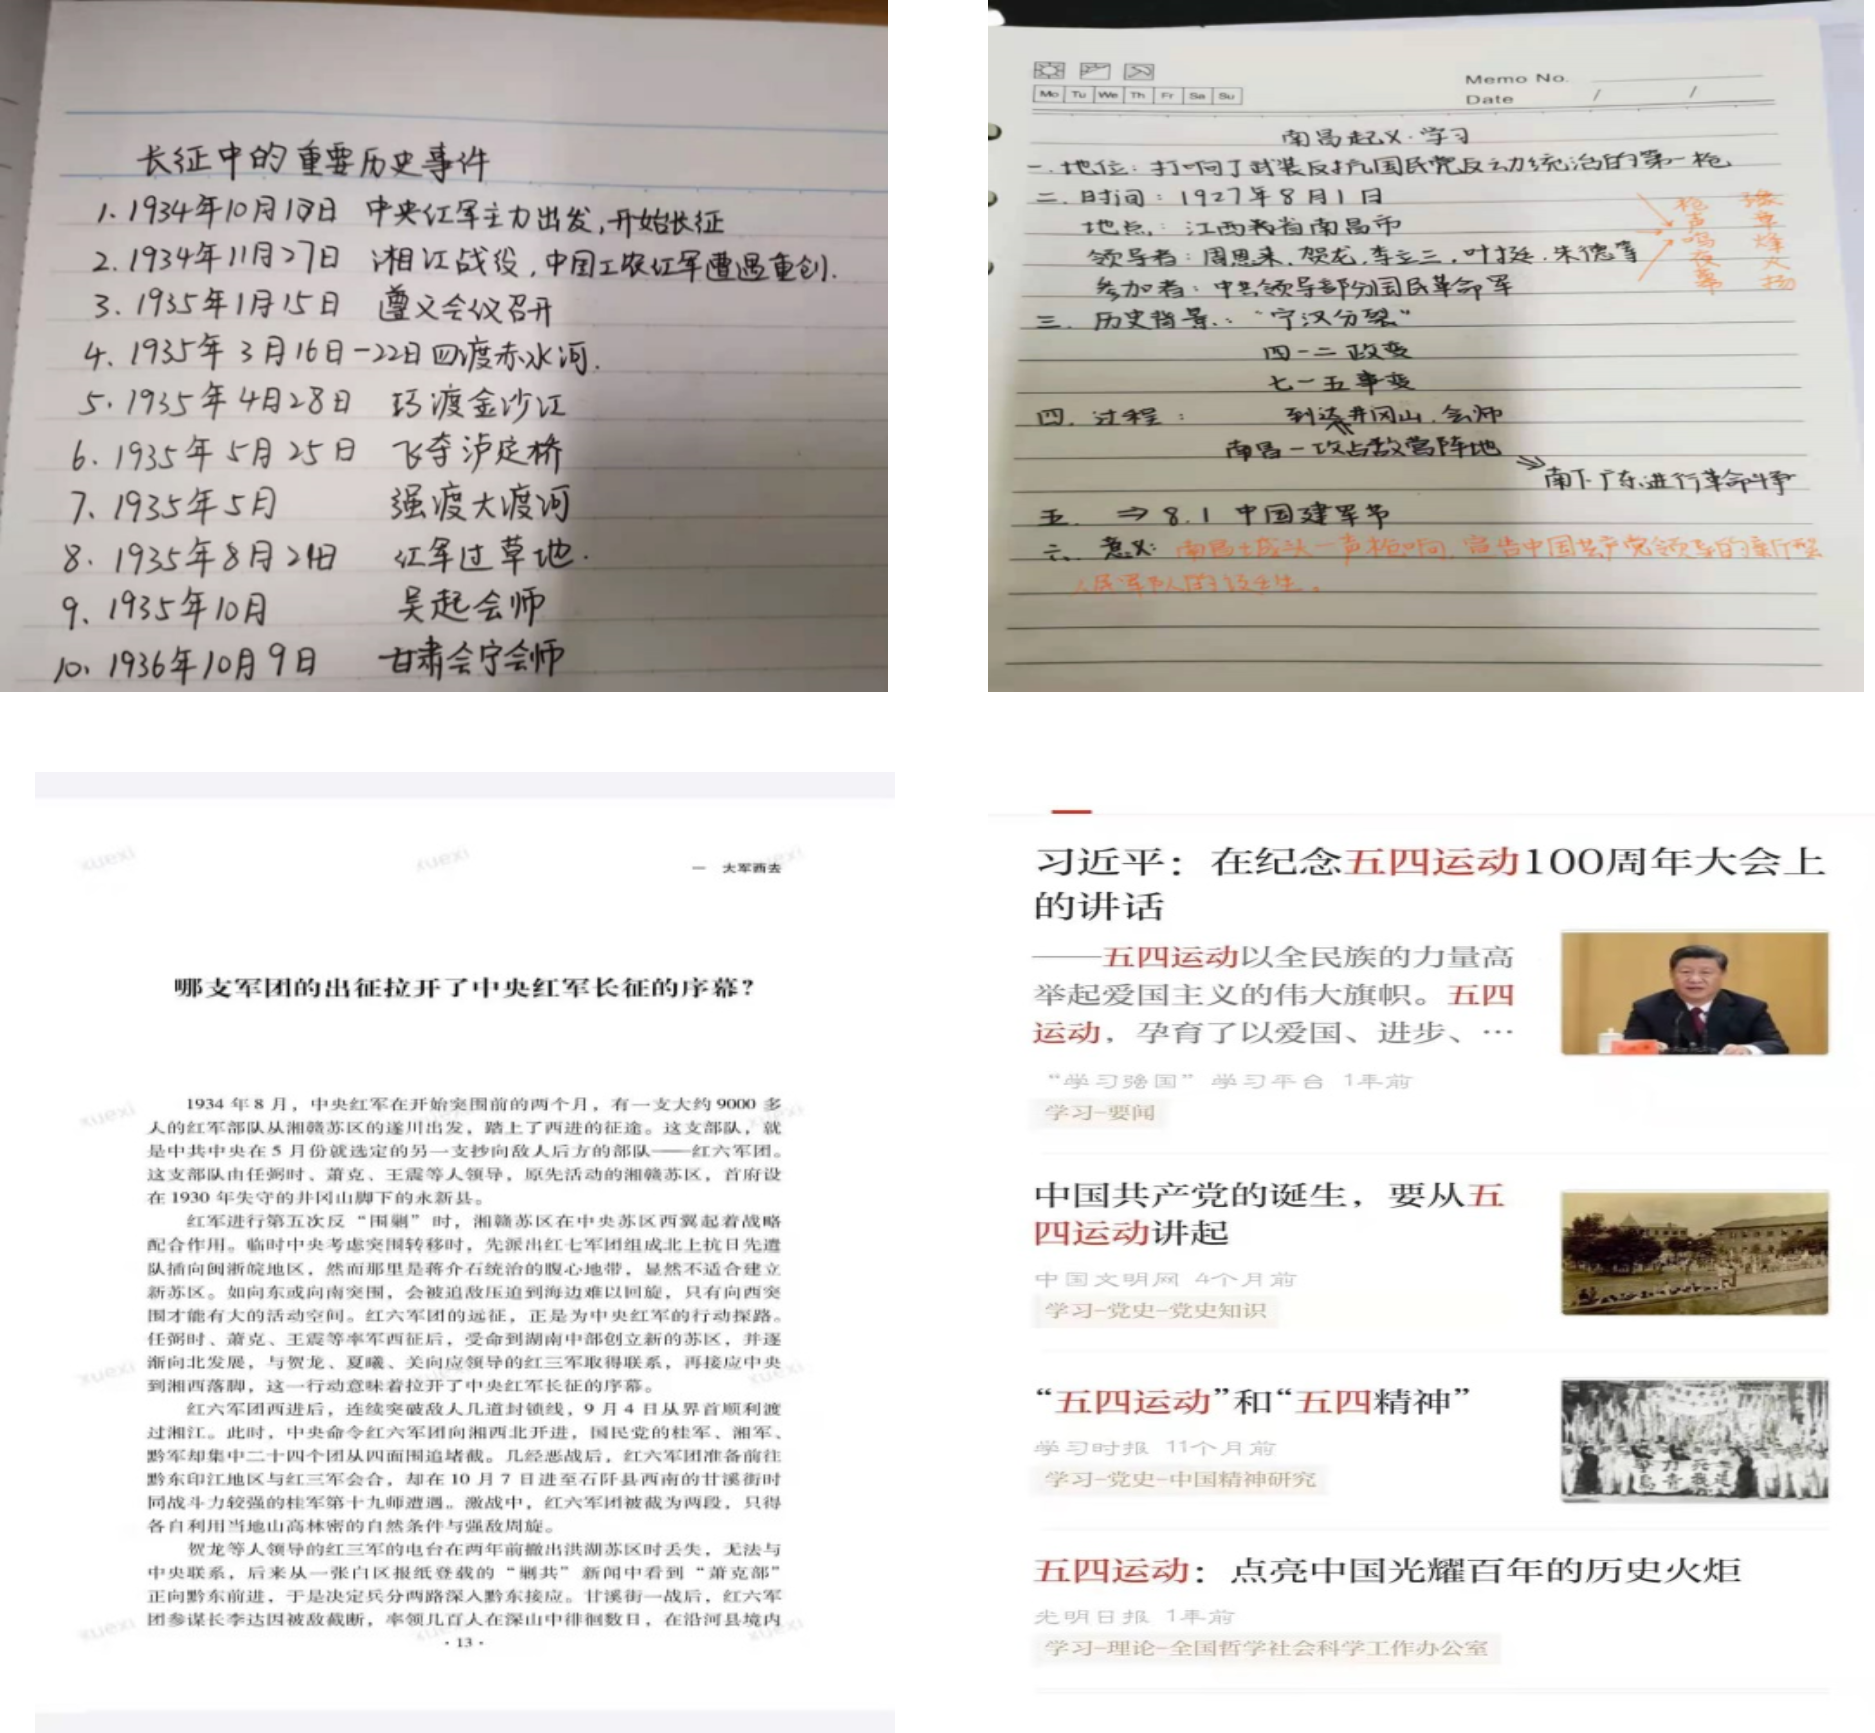 长征中的重要历史事件
1. 1934年10月10日 中央红军主力出发,开始长征
2. 1934年11月27日 湘江战役,中国工农红军遭遇重创.
3. 1935年1月15日 遵义会议召开
4. 1935年3月16日-22日四渡赤水河.
5. 1935年4月28日 巧渡金沙江
6. 1935年5月25日 飞夺泸定桥
7. 1935年5月 强渡大渡河
8. 1935年8月21日 红军过草地.
9. 1935年10月 吴起会师
10. 1936年10月9日 甘肃会宁会师
Memo No.
Mo Tu We Th Fr Sa Su
Date / /
南昌起义·学习
一.地位:打响了武装反抗国民党反动统治的第一枪
二.时间:1927年8月1日
地点:江西省南昌市
领导者:周恩来.贺龙.李立三.叶挺.朱德等
参加者:中共领导部分国民革命军
枪声鸣夜幕
豫章烽火扬
三.历史背景:“宁汉分裂”
四一二政变
七一五事变
四.过程: 到达井冈山.会师
南昌-攻占敌营阵地
南下广东进行革命斗争
五. ⇒ 8.1 中国建军节
六.意义:南昌城头一声枪响,宣告中国共产党领导的新型
人民军队的诞生。
xuexi xuexi
一 大军西去
哪支军团的出征拉开了中央红军长征的序幕?
1934年8月,中央红军在开始突围前的两个月,有一支大约9000多
人的红军部队从湘赣苏区的遂川出发,踏上了西进的征途。这支部队,就
是中共中央在5月份就选定的另一支抄向敌人后方的部队——红六军团。
这支部队由任弼时、萧克、王震等人领导,原先活动的湘赣苏区,首府设
在1930年失守的井冈山脚下的永新县。
红军进行第五次反“围剿”时,湘赣苏区在中央苏区西翼起着战略
配合作用。临时中央考虑突围转移时,先派出红七军团组成北上抗日先遣
队插向闽浙皖地区,然而那里是蒋介石统治的腹心地带,显然不适合建立
新苏区。如向东或向南突围,会被追敌压迫到海边难以回旋,只有向西突
围才能有大的活动空间。红六军团的远征,正是为中央红军的行动探路。
任弼时、萧克、王震等率军西征后,受命到湖南中部创立新的苏区,并逐
渐向北发展,与贺龙、夏曦、关向应领导的红三军取得联系,再接应中央
到湘西落脚,这一行动意味着拉开了中央红军长征的序幕。
红六军团西进后,连续突破敌人几道封锁线,9月4日从界首顺利渡
过湘江。此时,中央命令红六军团向湘西北开进,国民党的桂军、湘军、
黔军却集中二十四个团从四面围追堵截。几经恶战后,红六军团准备前往
黔东印江地区与红三军会合,却在10月7日进至石阡县西南的甘溪街时
同战斗力较强的桂军第十九师遭遇。激战中,红六军团被截为两段,只得
各自利用当地山高林密的自然条件与强敌周旋。
贺龙等人领导的红三军的电台在两年前撤出洪湖苏区时丢失,无法与
中央联系,后来从一张白区报纸登载的“剿共”新闻中看到“萧克部”
正向黔东前进,于是决定兵分两路深入黔东接应。甘溪街一战后,红六军
团参谋长李达因被敌截断,率领几百人在深山中徘徊数日,在沿河县境内
· 13 ·
习近平:在纪念五四运动100周年大会上
的讲话
——五四运动以全民族的力量高
举起爱国主义的伟大旗帜。五四
运动,孕育了以爱国、进步、…
“学习强国”学习平台 1年前
学习-要闻
中国共产党的诞生,要从五
四运动讲起
中国文明网 4个月前
学习-党史-党史知识
“五四运动”和“五四精神”
学习时报 11个月前
学习-党史-中国精神研究
五四运动:点亮中国光耀百年的历史火炬
光明日报 1年前
学习-理论-全国哲学社会科学工作办公室